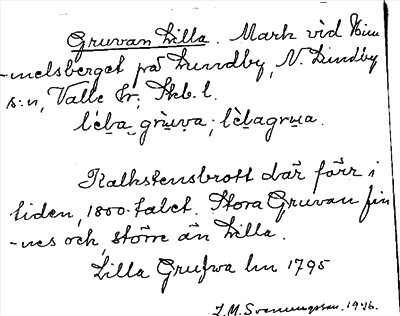 Gruvan Lilla. Mark vid Him
-melsberget på Lundby, N. Lundby
s:n, Valle hr, Skb. l.
lı̀ḷa grùva; lı̀ḷagruа.
Kalkstensbrott där förr i
tiden, 1800-talet. Stora Gruvan fin
-nes och, större än Lilla.
Lilla Grufwa lm 1795